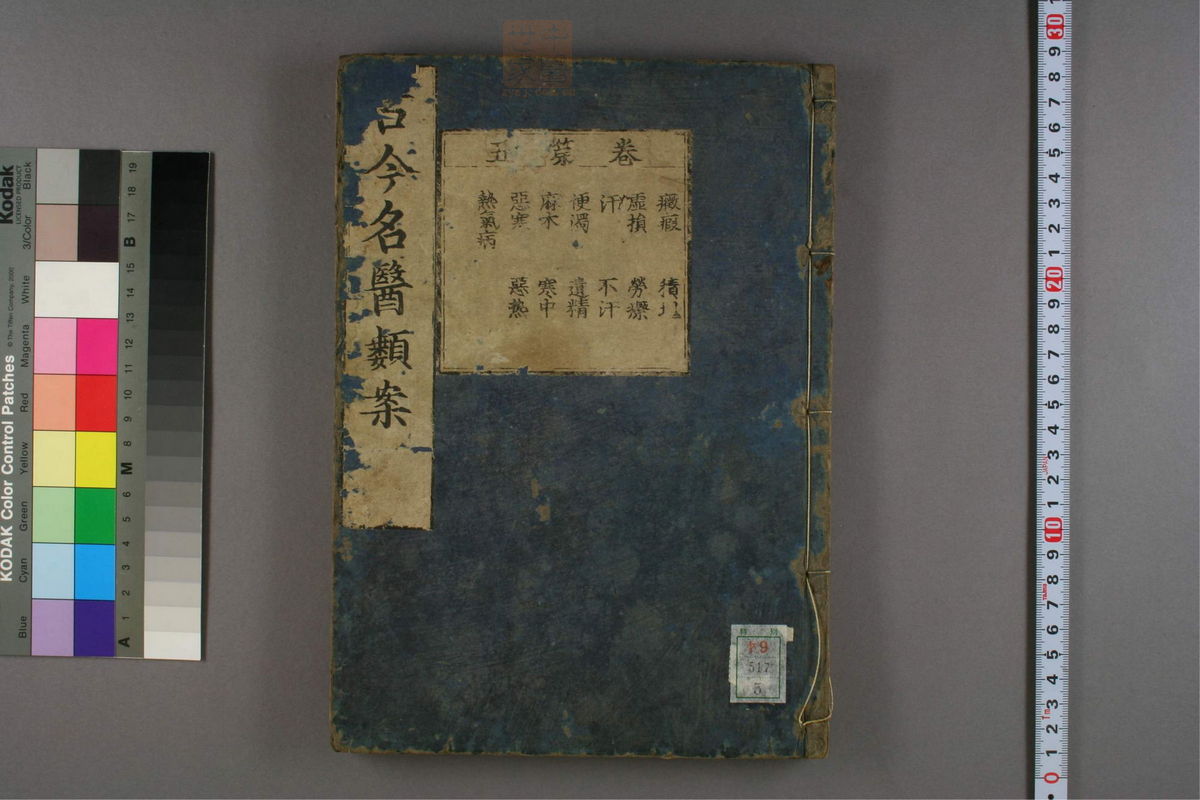 古今名醫類案
卷第五
癥瘕 積塊
虛損 勞瘵
汗 不汗
便濁 遺精
麻木 寒中
惡寒 惡熱
熱氣病
特別
49
517
5
KODAK Color Control Patches
Kodak
LICENSED PRODUCT
© The Tiffen Company, 2000
Blue
Cyan
Green
Yellow
Red
Magenta
White
3/Color
Black
A 1 2 3 4 5 6 M 8 9 10 11 12 13 14 15 B 17 18 19
0 1 2 3 4 5 6 7 8 9 10 1 2 3 4 5 6 7 8 9 20 1 2 3 4 5 6 7 8 9 30